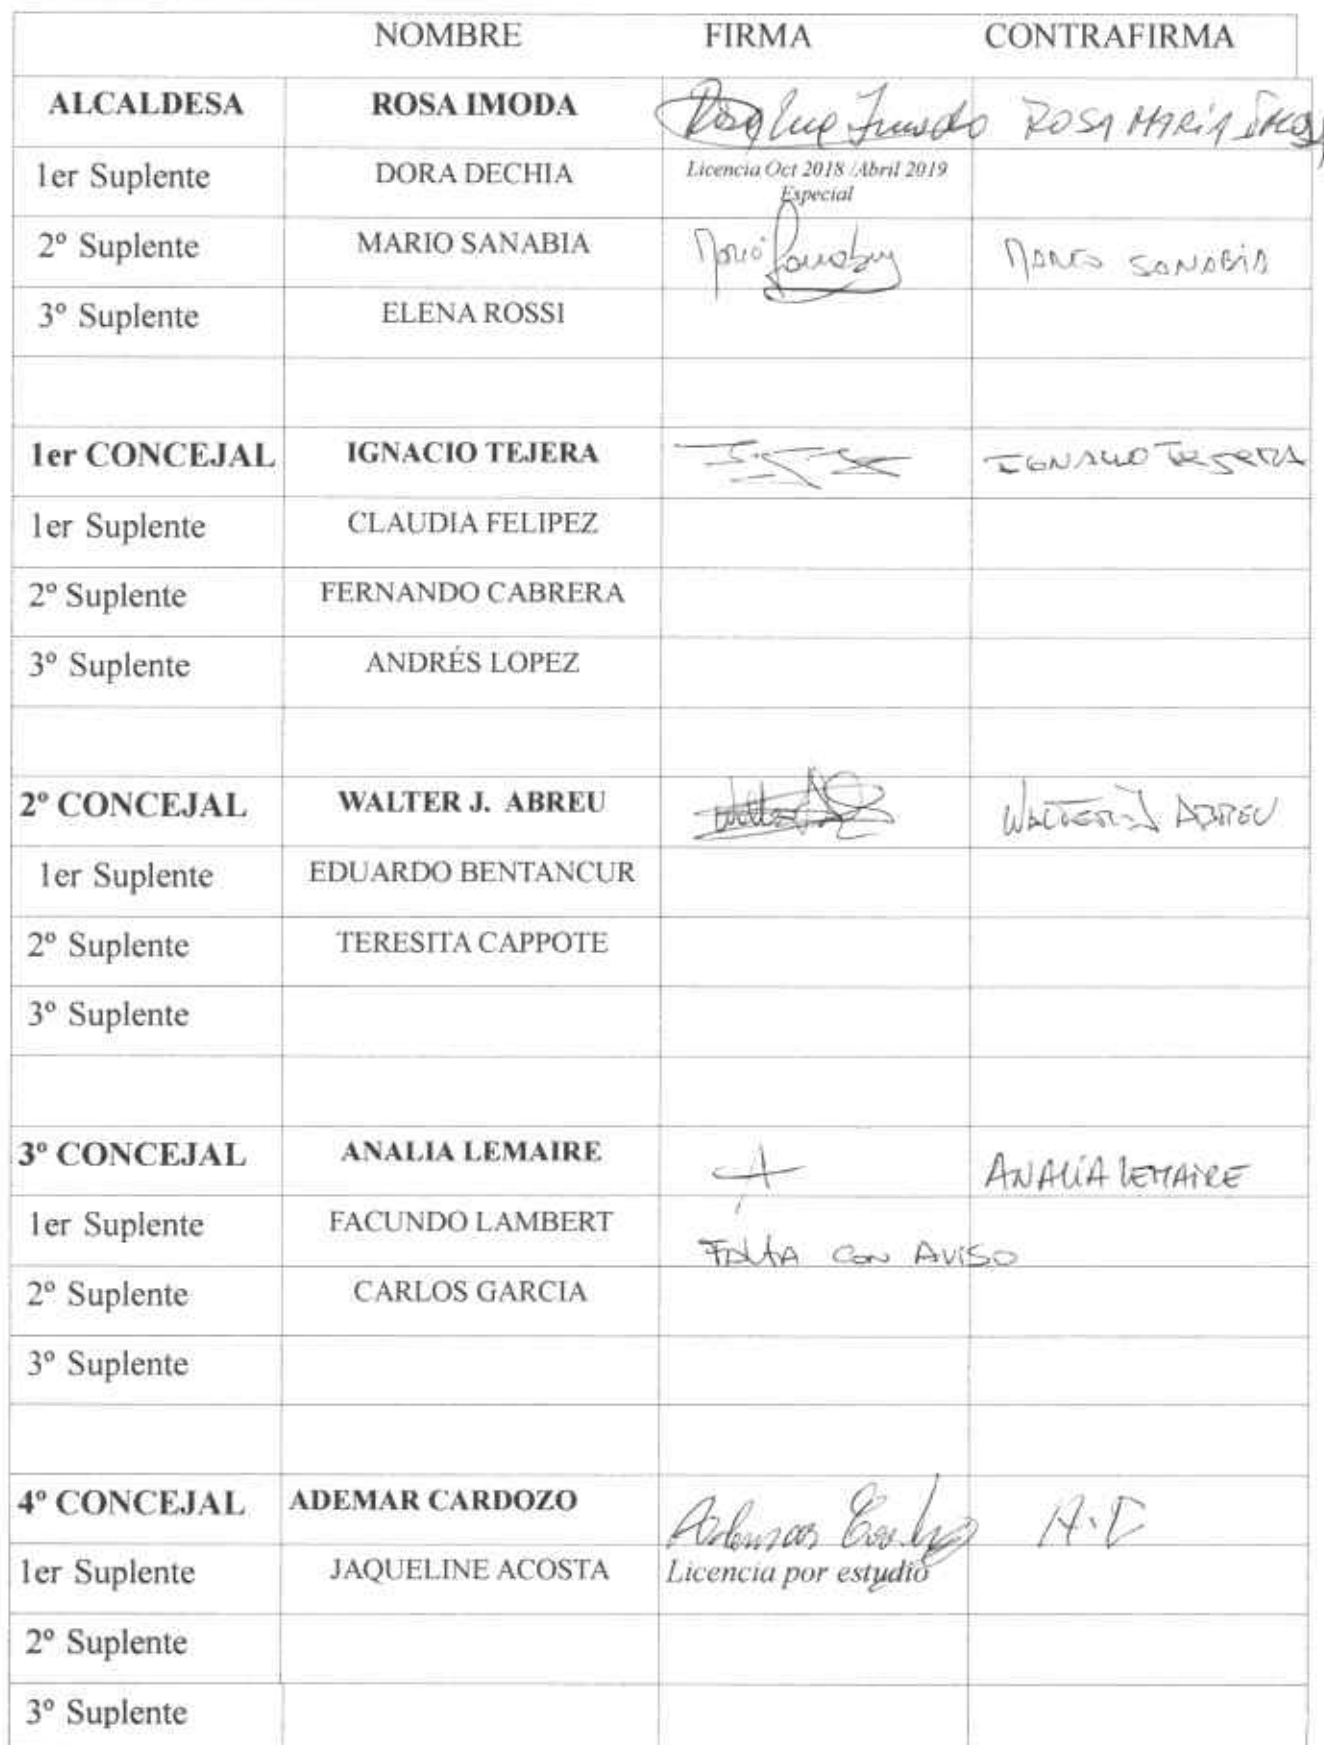 NOMBRE FIRMA CONTRAFIRMA
ALCALDESA ROSA IMODA ROSA MARÍA
1er Suplente DORA DECHIA Licencia Oct 2018 /Abril 2019
Especial
2º Suplente MARIO SANABIA MARIO SANABIA
3º Suplente ELENA ROSSI
1er CONCEJAL IGNACIO TEJERA IGNACIO TEJERA
1er Suplente CLAUDIA FELIPEZ
2º Suplente FERNANDO CABRERA
3º Suplente ANDRÉS LOPEZ
2º CONCEJAL WALTER J. ABREU WALTER J ABREU
1er Suplente EDUARDO BENTANCUR
2º Suplente TERESITA CAPPOTE
3º Suplente
3º CONCEJAL ANALIA LEMAIRE A ANALÍA LEMAIRE
1er Suplente FACUNDO LAMBERT FALTA CON AVISO
2º Suplente CARLOS GARCIA
3º Suplente
4º CONCEJAL ADEMAR CARDOZO A.C
1er Suplente JAQUELINE ACOSTA Licencia por estudio
2º Suplente
3º Suplente